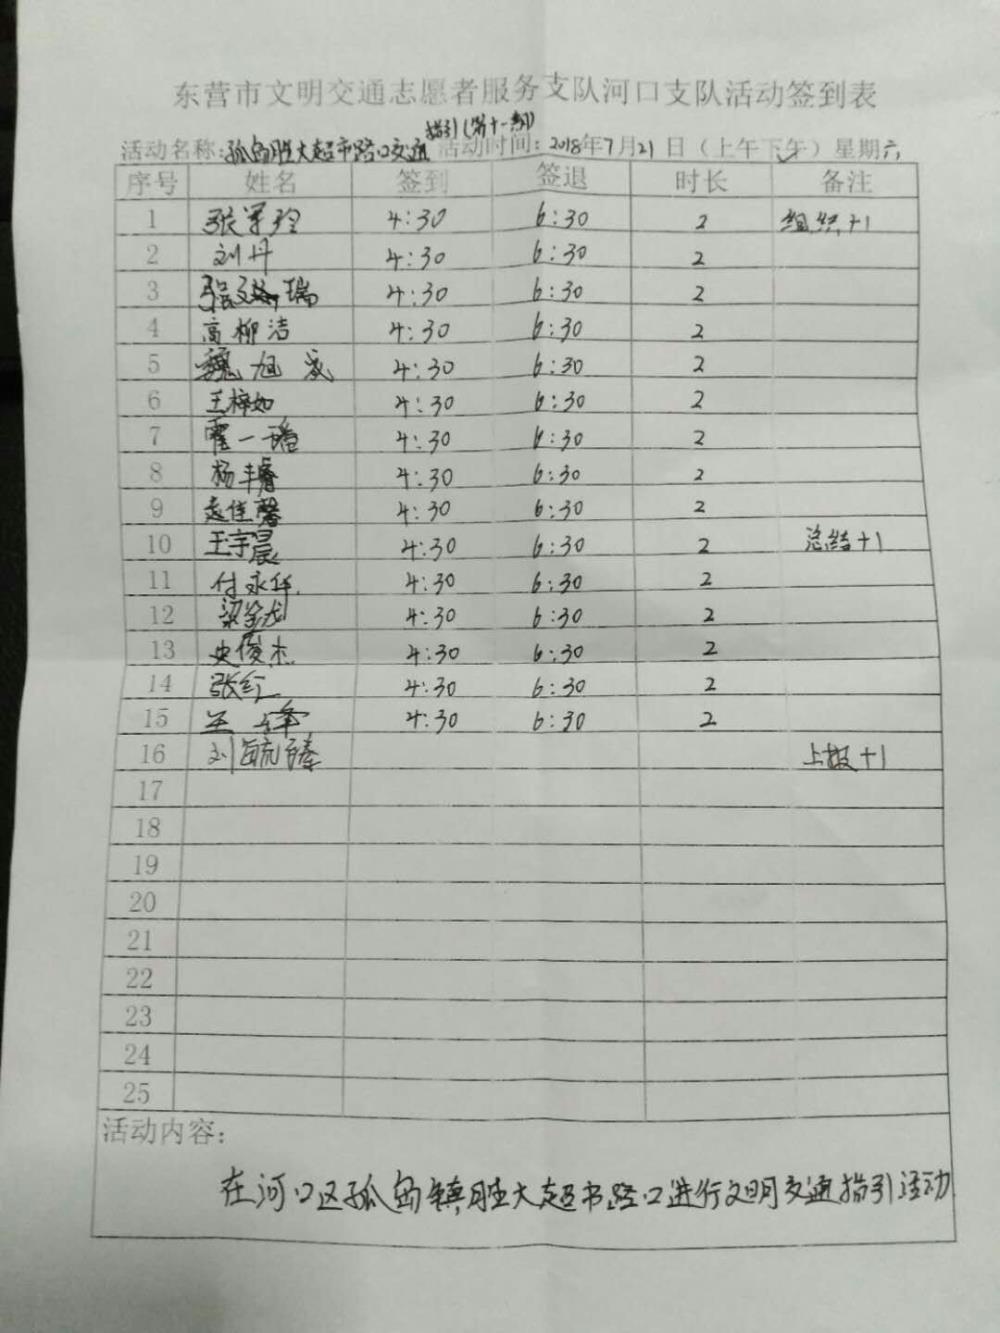 东营市文明交通志愿者服务支队河口支队活动签到表
指引(第十一期)
活动名称:孤岛胜大超市路口交通 活动时间:2018年7月21日(上午下午)星期六
序号 姓名 签到 签退 时长 备注
1 张军玲 4:30 6:30 2 组织+1
2 刘丹 4:30 6:30 2
3 张文瑞 4:30 6:30 2
4 高柳洁 4:30 6:30 2
5 魏旭成 4:30 6:30 2
6 王梓如 4:30 6:30 2
7 霍一璠 4:30 6:30 2
8 杨丰睿 4:30 6:30 2
9 袁佳馨 4:30 6:30 2
10 王宇晨 4:30 6:30 2 总结+1
11 付永华 4:30 6:30 2
12 梁金龙 4:30 6:30 2
13 史俊杰 4:30 6:30 2
14 张红 4:30 6:30 2
15 王 4:30 6:30 2
16 刘毓臻 上报+1
17
18
19
20
21
22
23
24
25
活动内容:
在河口区孤岛镇胜大超市路口进行文明交通指引活动